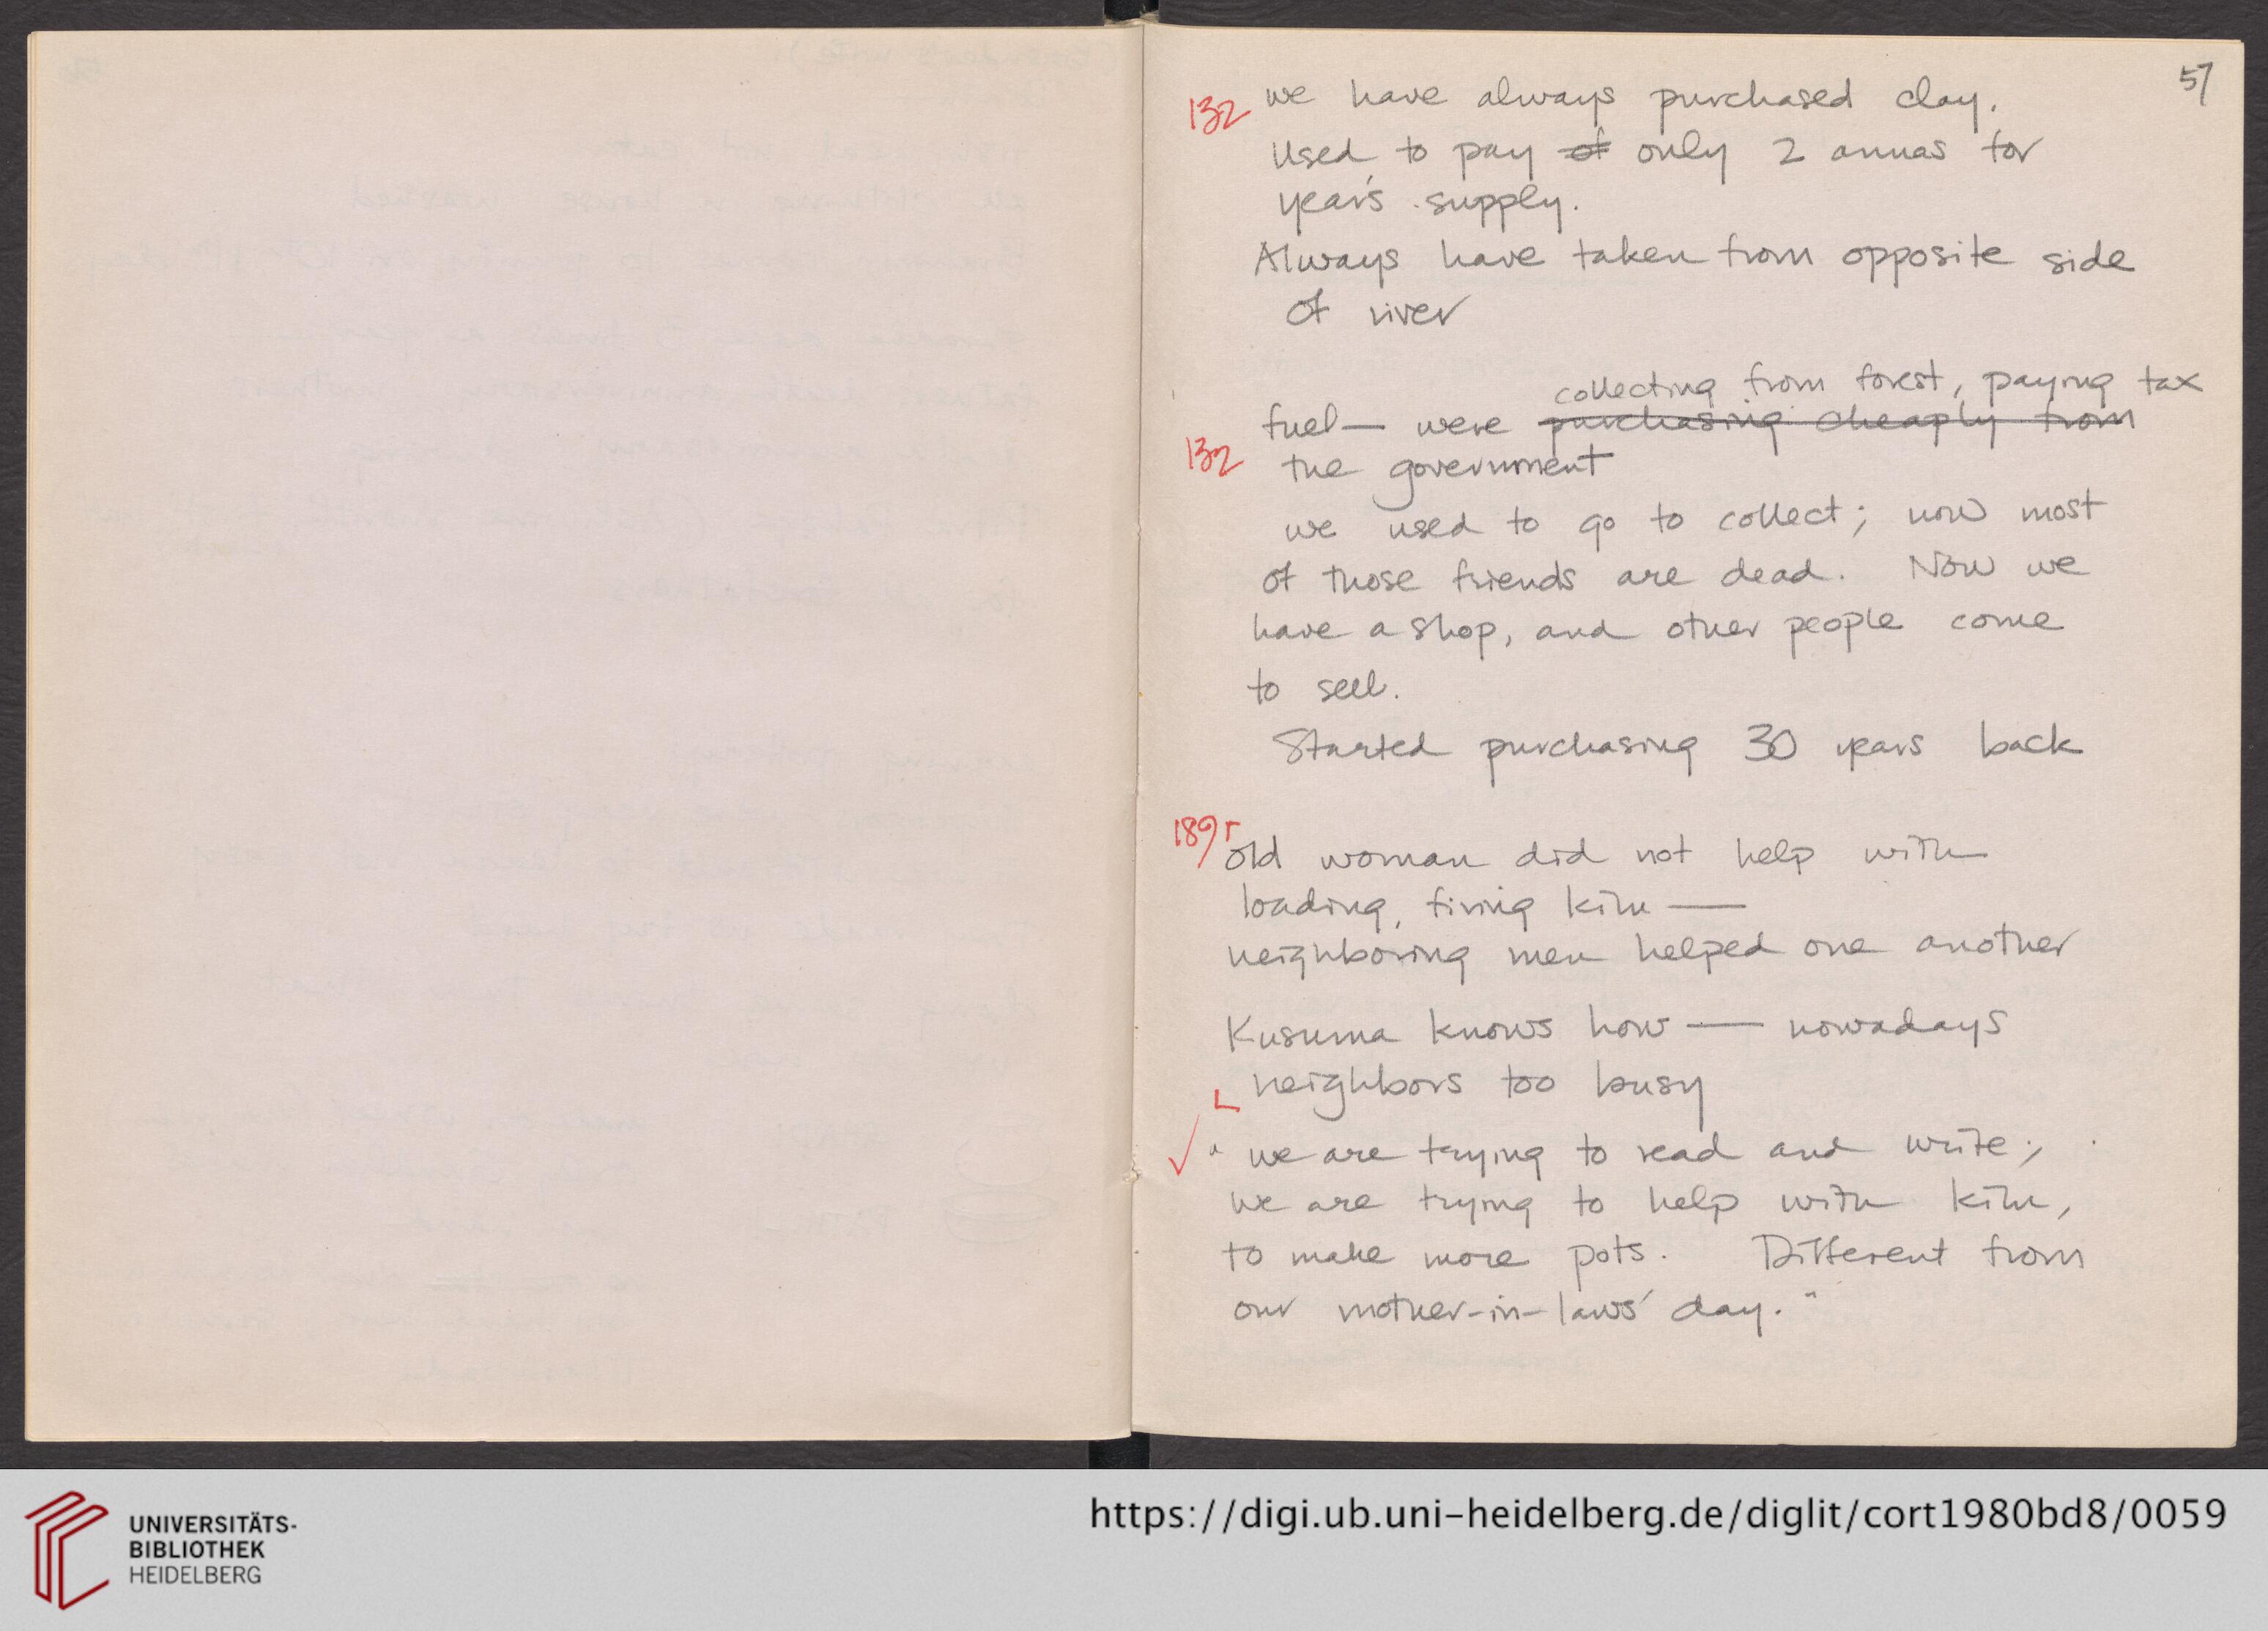 57
132 we have always purchased clay.
Used to pay of only 2 annas for
year's supply.
Always have taken from opposite side
of river
collecting from forest, paying tax
fuel — were purchasing cheaply from
132 the government
we used to go to collect; now most
of those friends are dead. Now we
have a shop, and other people come
to sell.
Started purchasing 30 years back
189
old woman did not help with
loading, firing kiln —
neighboring men helped one another
Kusuma knows how — nowadays
neighbors too busy
✓ "we are trying to read and write;
we are trying to help with kiln,
to make more pots. Different from
our mother-in-laws' day."
UNIVERSITÄTS-
BIBLIOTHEK
HEIDELBERG
https://digi.ub.uni-heidelberg.de/diglit/cort1980bd8/0059